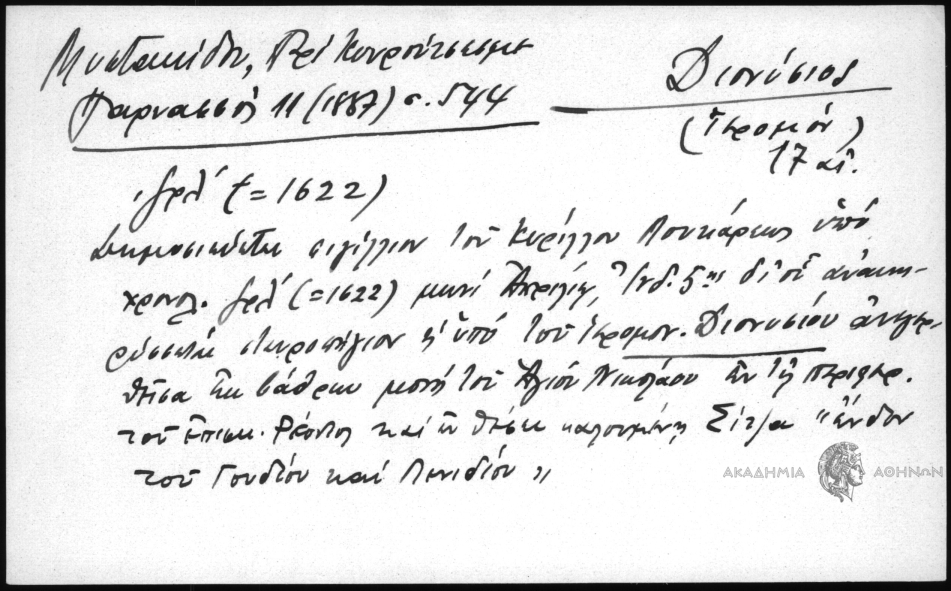 Μυστακίδου, Περί Κουρούτσεσμε
Παρνασσός 11 (1887) σ. 544
Διονύσιος
(ἱερομόν)
17 αἰ.
͵ζρλ´ (=1622)
Δημοσιεύεται σιγίλλιον τοῦ Κυρίλλου Λουκάρεως ὑπό
χρονολ. ζρλ´ (=1622) μηνί Ἀπριλίῳ, Ἰνδ. 5ης δι' οὗ ἀνακη-
ρύσσεται σταυροπήγιον ἡ ὑπό τοῦ ἱερομον. Διονυσίου ἀνεγερ-
θεῖσα ἐκ βάθρων μονή τοῦ Ἁγίου Νικολάου ἐν τῇ περιφερ.
τοῦ Ἐπισκ. Ρέοντος καί ἐν θέσει καλουμένῃ Σίτζα "ἔνδον
τοῦ Γουδίου καί Λενιδίου"
ΑΚΑΔΗΜΙΑ ΑΘΗΝΩΝ